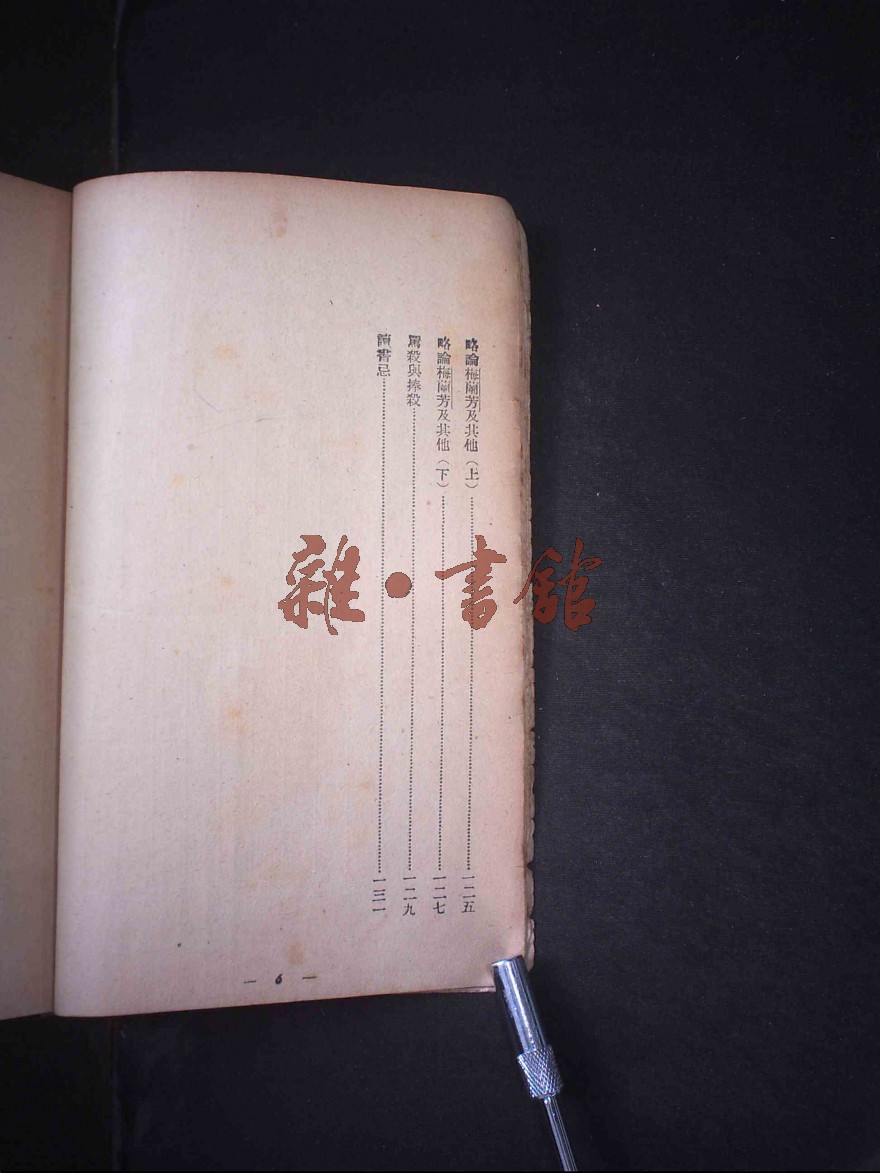 略論梅蘭芳及其他（上）……一二五
略論梅蘭芳及其他（下）……一二七
罵殺與捧殺……一二九
讀書忌……一三一
— 6 —
雜·書館